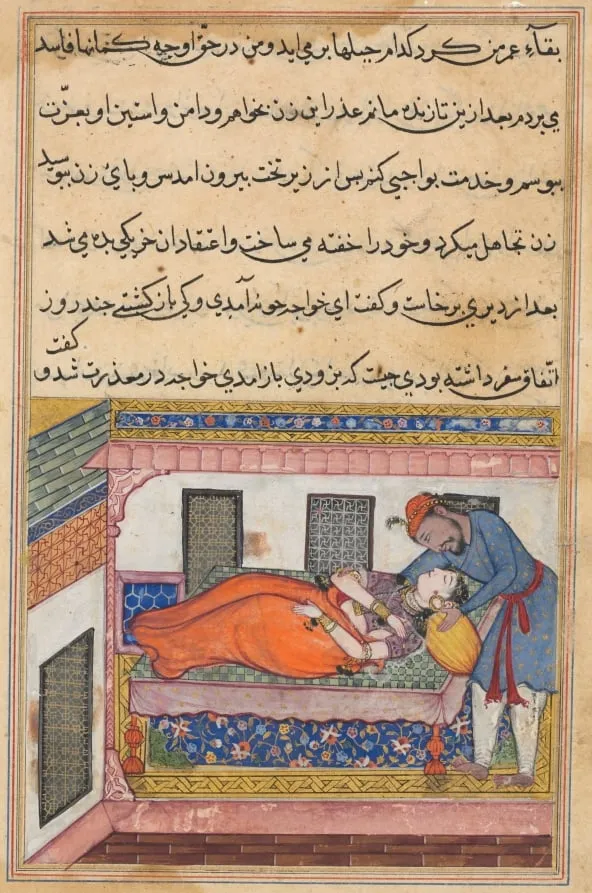 بقاء عمر من کرد کدام حیلها بر می اید و من در حق او چه کمانها فاسد
می بردم بعد ازین تا زنده مانم عذر این زن بخواهم و دامن و استین او بعزت
ببوسم و خدمت بواجبی کنم پس از زیر تخت بیرون امد سر و پای زن ببوسید
زن تجاهل میکرد و خود را خفته می ساخت و اعتقاد ان خر یکی بده می شد
بعد از دیری برخاست و کفت ای خواجه خوند آمدی و کی باز کشتی چند روز
اتفاق سفر داشته بودی چیست که بزودی باز امدی خواجه در معذرت شد و کفت